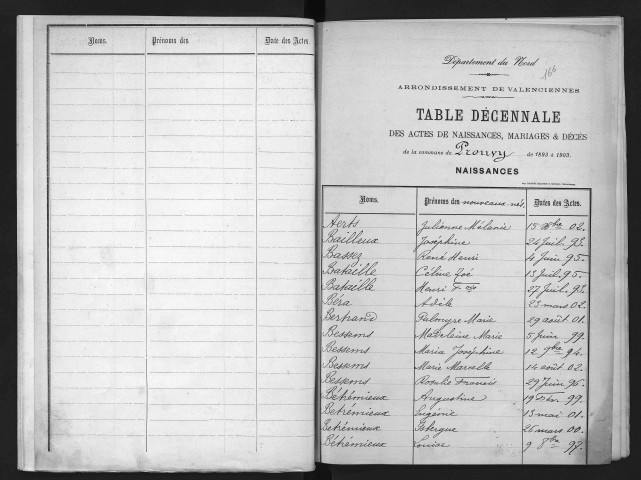 Noms. Prénoms des Date des Actes.
Département du Nord
166
ARRONDISSEMENT DE VALENCIENNES
TABLE DÉCENNALE
DES ACTES DE NAISSANCES, MARIAGES & DÉCÈS
de la commune de Prouvy de 1893 à 1903.
NAISSANCES
Noms. Prénoms des nouveaux-nés. Dates des Actes.
Aerts Julienne Mélanie 15 Xbre 02.
Bailleux Joséphine 24 Juil. 93.
Bassez René Henri 4 Juin 95.
Bataille Céline Zoé 13 Juil. 95.
Bataille Henri 27 Juil. 93.
Béra Adèle 23 mars 02.
Bertrand Palmyre Marie 29 août 01.
Bessems Madeleine Marie 5 Juin 99.
Bessems Maria Joséphine 12 9bre 94.
Bessems Marie Marcelle 14 août 02.
Bessems Rosalie Francis 29 Juin 96.
Bétrémieux Augustine 19 Fév. 99.
Betrémieux Eugénie 13 mai 01.
Betrémieux 26 mars 00.
Bétrémieux Louise 9 8bre 97.